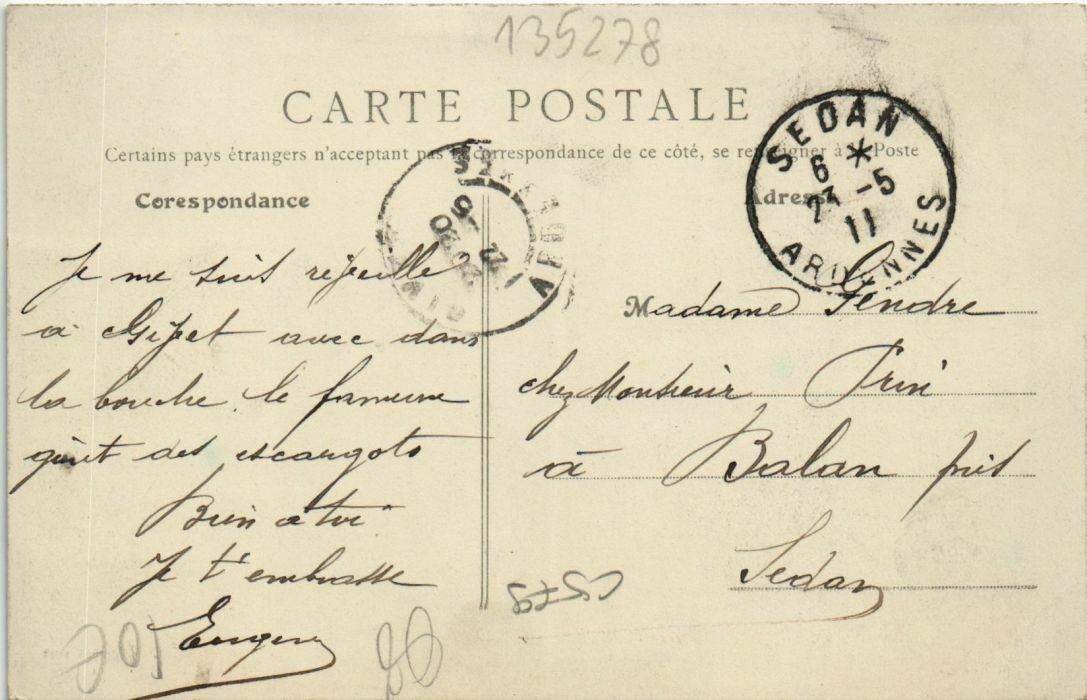 135278
CARTE POSTALE
Certains pays étrangers n'acceptant pas la correspondance de ce côté, se renseigner à la Poste
Corespondance
Adresse
SEDAN
6 *
23 -5
11
ARDENNES
Je me suis réveillé
à Givet avec dans
la bouche le fameux
goût des escargots
Bien à toi
Je t'embrasse
Madame Gendre
chez Monsieur Prin
à Balan près
Sedan